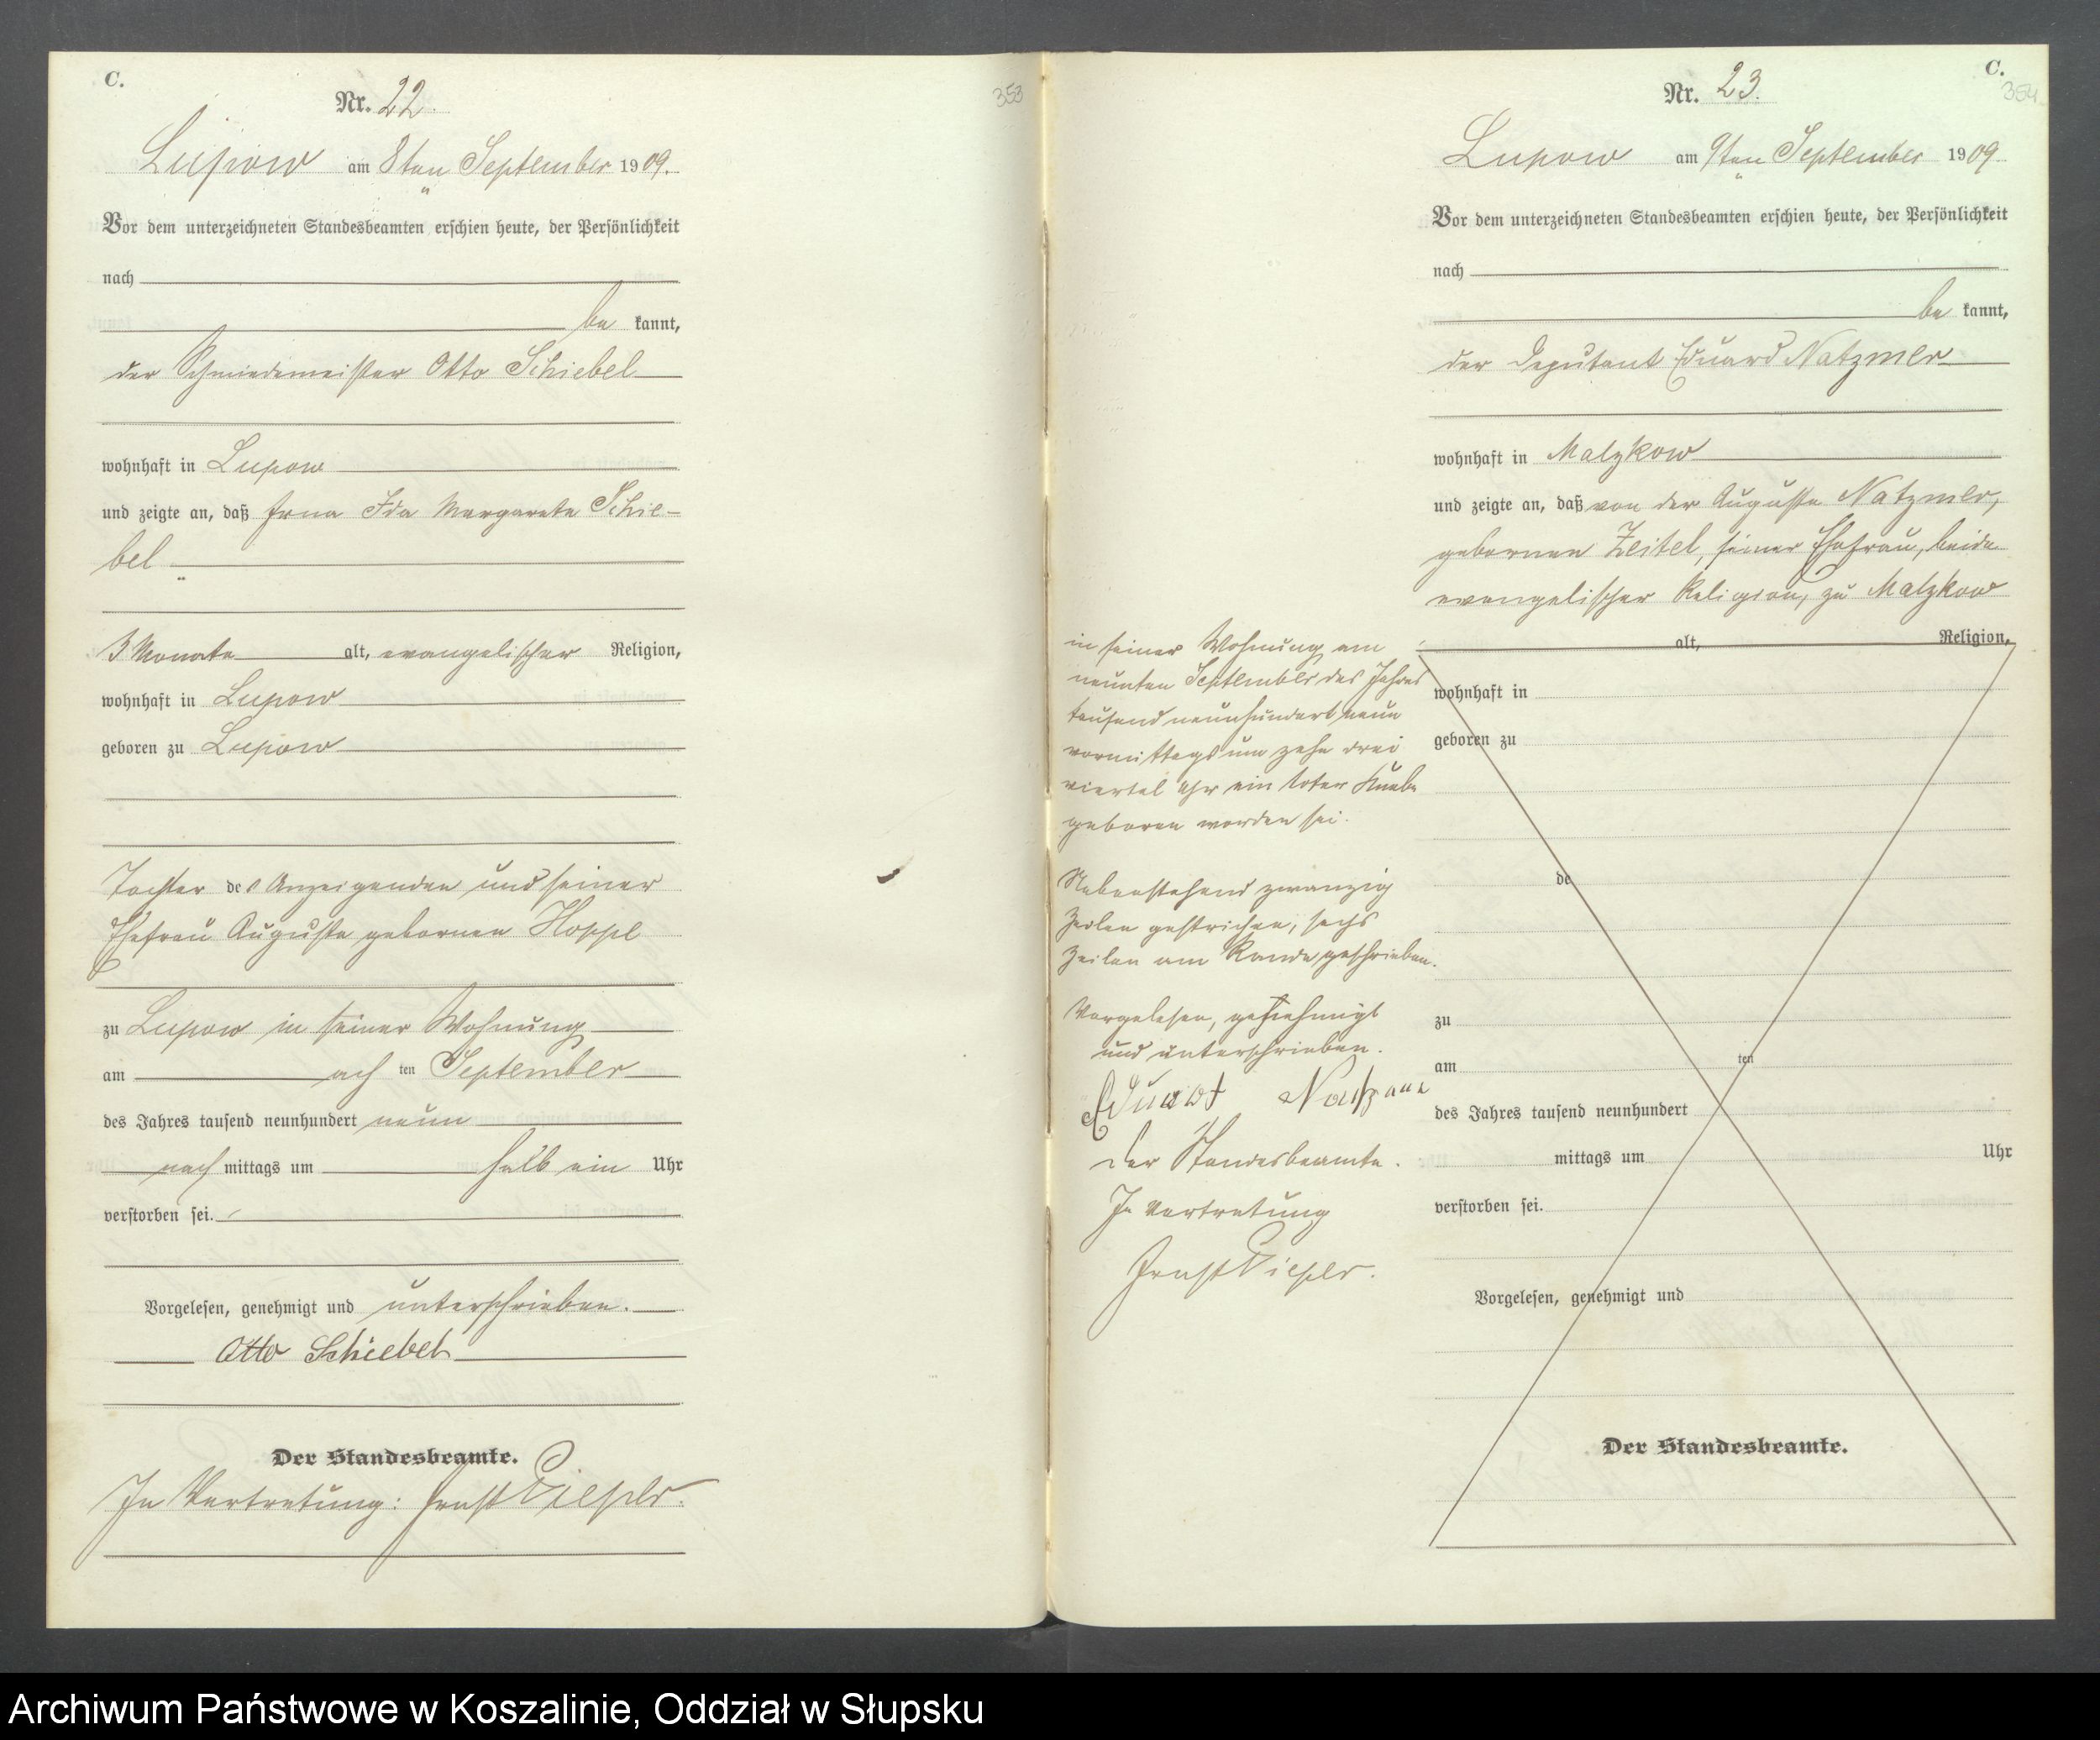 C.
Nr. 22.
353
Lupow am 8ten September 1909.
Vor dem unterzeichneten Standesbeamten erschien heute, der Persönlichkeit
nach
be kannt,
der Schmiedemeister Otto Schiebel
wohnhaft in Lupow
und zeigte an, daß Erna Ida Margarete Schie-
bel
3 Monate alt, evangelischer Religion,
wohnhaft in Lupow
geboren zu Lupow
Tochter des Anzeigenden und seiner
Ehefrau Auguste gebornen Hoppe
zu Lupow in seiner Wohnung
am ach ten September
des Jahres tausend neunhundert neun
nach mittags um halb ein Uhr
verstorben sei.
Vorgelesen, genehmigt und unterschrieben.
Otto Schiebel
Der Standesbeamte.
In Vertretung: Ernst Piepler.
C.
Nr. 23.
354
Lupow am 9ten September 1909
Vor dem unterzeichneten Standesbeamten erschien heute, der Persönlichkeit
nach
be kannt,
der Deputant Eduard Natzmer
wohnhaft in Malzkow
und zeigte an, daß von der Auguste Natzmer,
gebornen Zeitel, seiner Ehefrau, beide
evangelischer Religion, zu Malzkow
alt, Religion,
wohnhaft in
geboren zu
de
zu
am ten
des Jahres tausend neunhundert
mittags um Uhr
verstorben sei.
Vorgelesen, genehmigt und
Der Standesbeamte.
in seiner Wohnung am
neunten September des Jahres
tausend neunhundert neun
vormittags um zehn drei
viertel Uhr ein toter Knabe
geboren worden sei.
Nebenstehend zwanzig
Zeilen gestrichen, sechs
Zeilen am Rande geschrieben.
Vorgelesen, genehmigt
und unterschrieben.
Eduard
Der Standesbeamte.
In Vertretung
Ernst Piepler.
Archiwum Państwowe w Koszalinie, Oddział w Słupsku